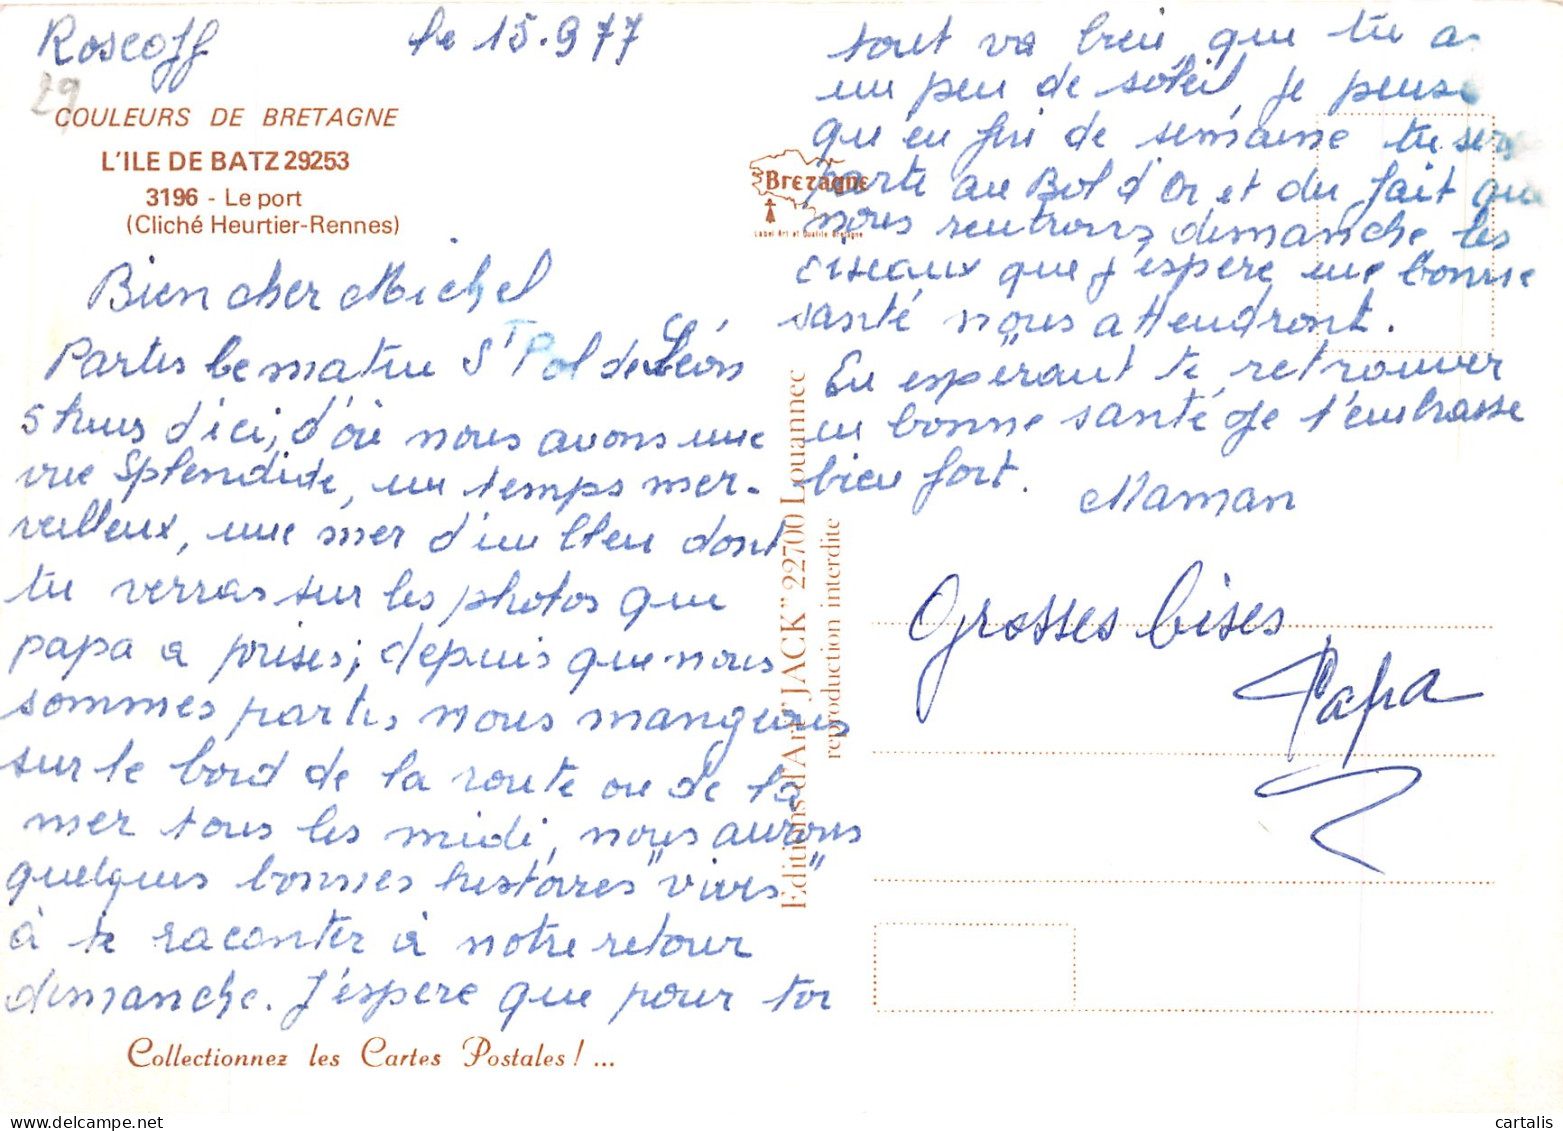 Roscoff le 15.9 77
29
COULEURS DE BRETAGNE
L'ILE DE BATZ 29253
3196 - Le port
(Cliché Heurtier-Rennes)
Bien cher Michel
Partis le matin St Pol de Léon
5 kms d'ici, d'où nous avons une
vue splendide, un temps mer-
veilleux, une mer d'un bleu dont
tu verras sur les photos que
papa a prises; depuis que nous
sommes partis nous mangeons
sur le bord de la route ou de la
mer tous les midi, nous aurons
quelques bonnes histoires "vives"
à te raconter à notre retour
dimanche. J'espère que pour toi
Collectionnez les Cartes Postales ! ...
Bretagne
Label Art et Qualité Bretagne
Editions d'Art "JACK" 22700 Louannec
reproduction interdite
tout va bien, que tu a
un peu de soleil, je pense
qu'en fin de semaine tu seras
parti au Bol d'Or et du fait que
nous rentrons dimanche les
oiseaux que j'espère une bonne
santé nous attendront.
En espérant te retrouver
en bonne santé je t'embrasse
bien fort. Maman
Grosses bises
Papa